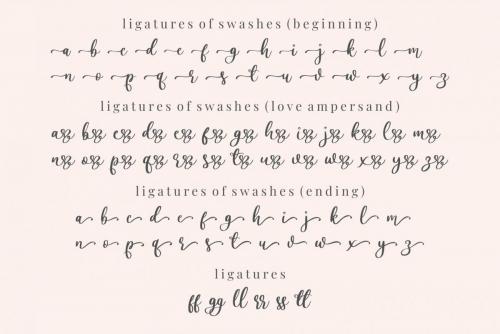 ligatures of swashes (beginning)
a b c d e f g h i j k l m
n o p q r s t u v w x y z
ligatures of swashes (love ampersand)
a& b& c& d& e& f& g& h& i& j& k& l& m&
n& o& p& q& r& s& t& u& v& w& x& y& z&
ligatures of swashes (ending)
a b c d e f g h i j k l m
n o p q r s t u v w x y z
ligatures
ff gg ll rr ss tt